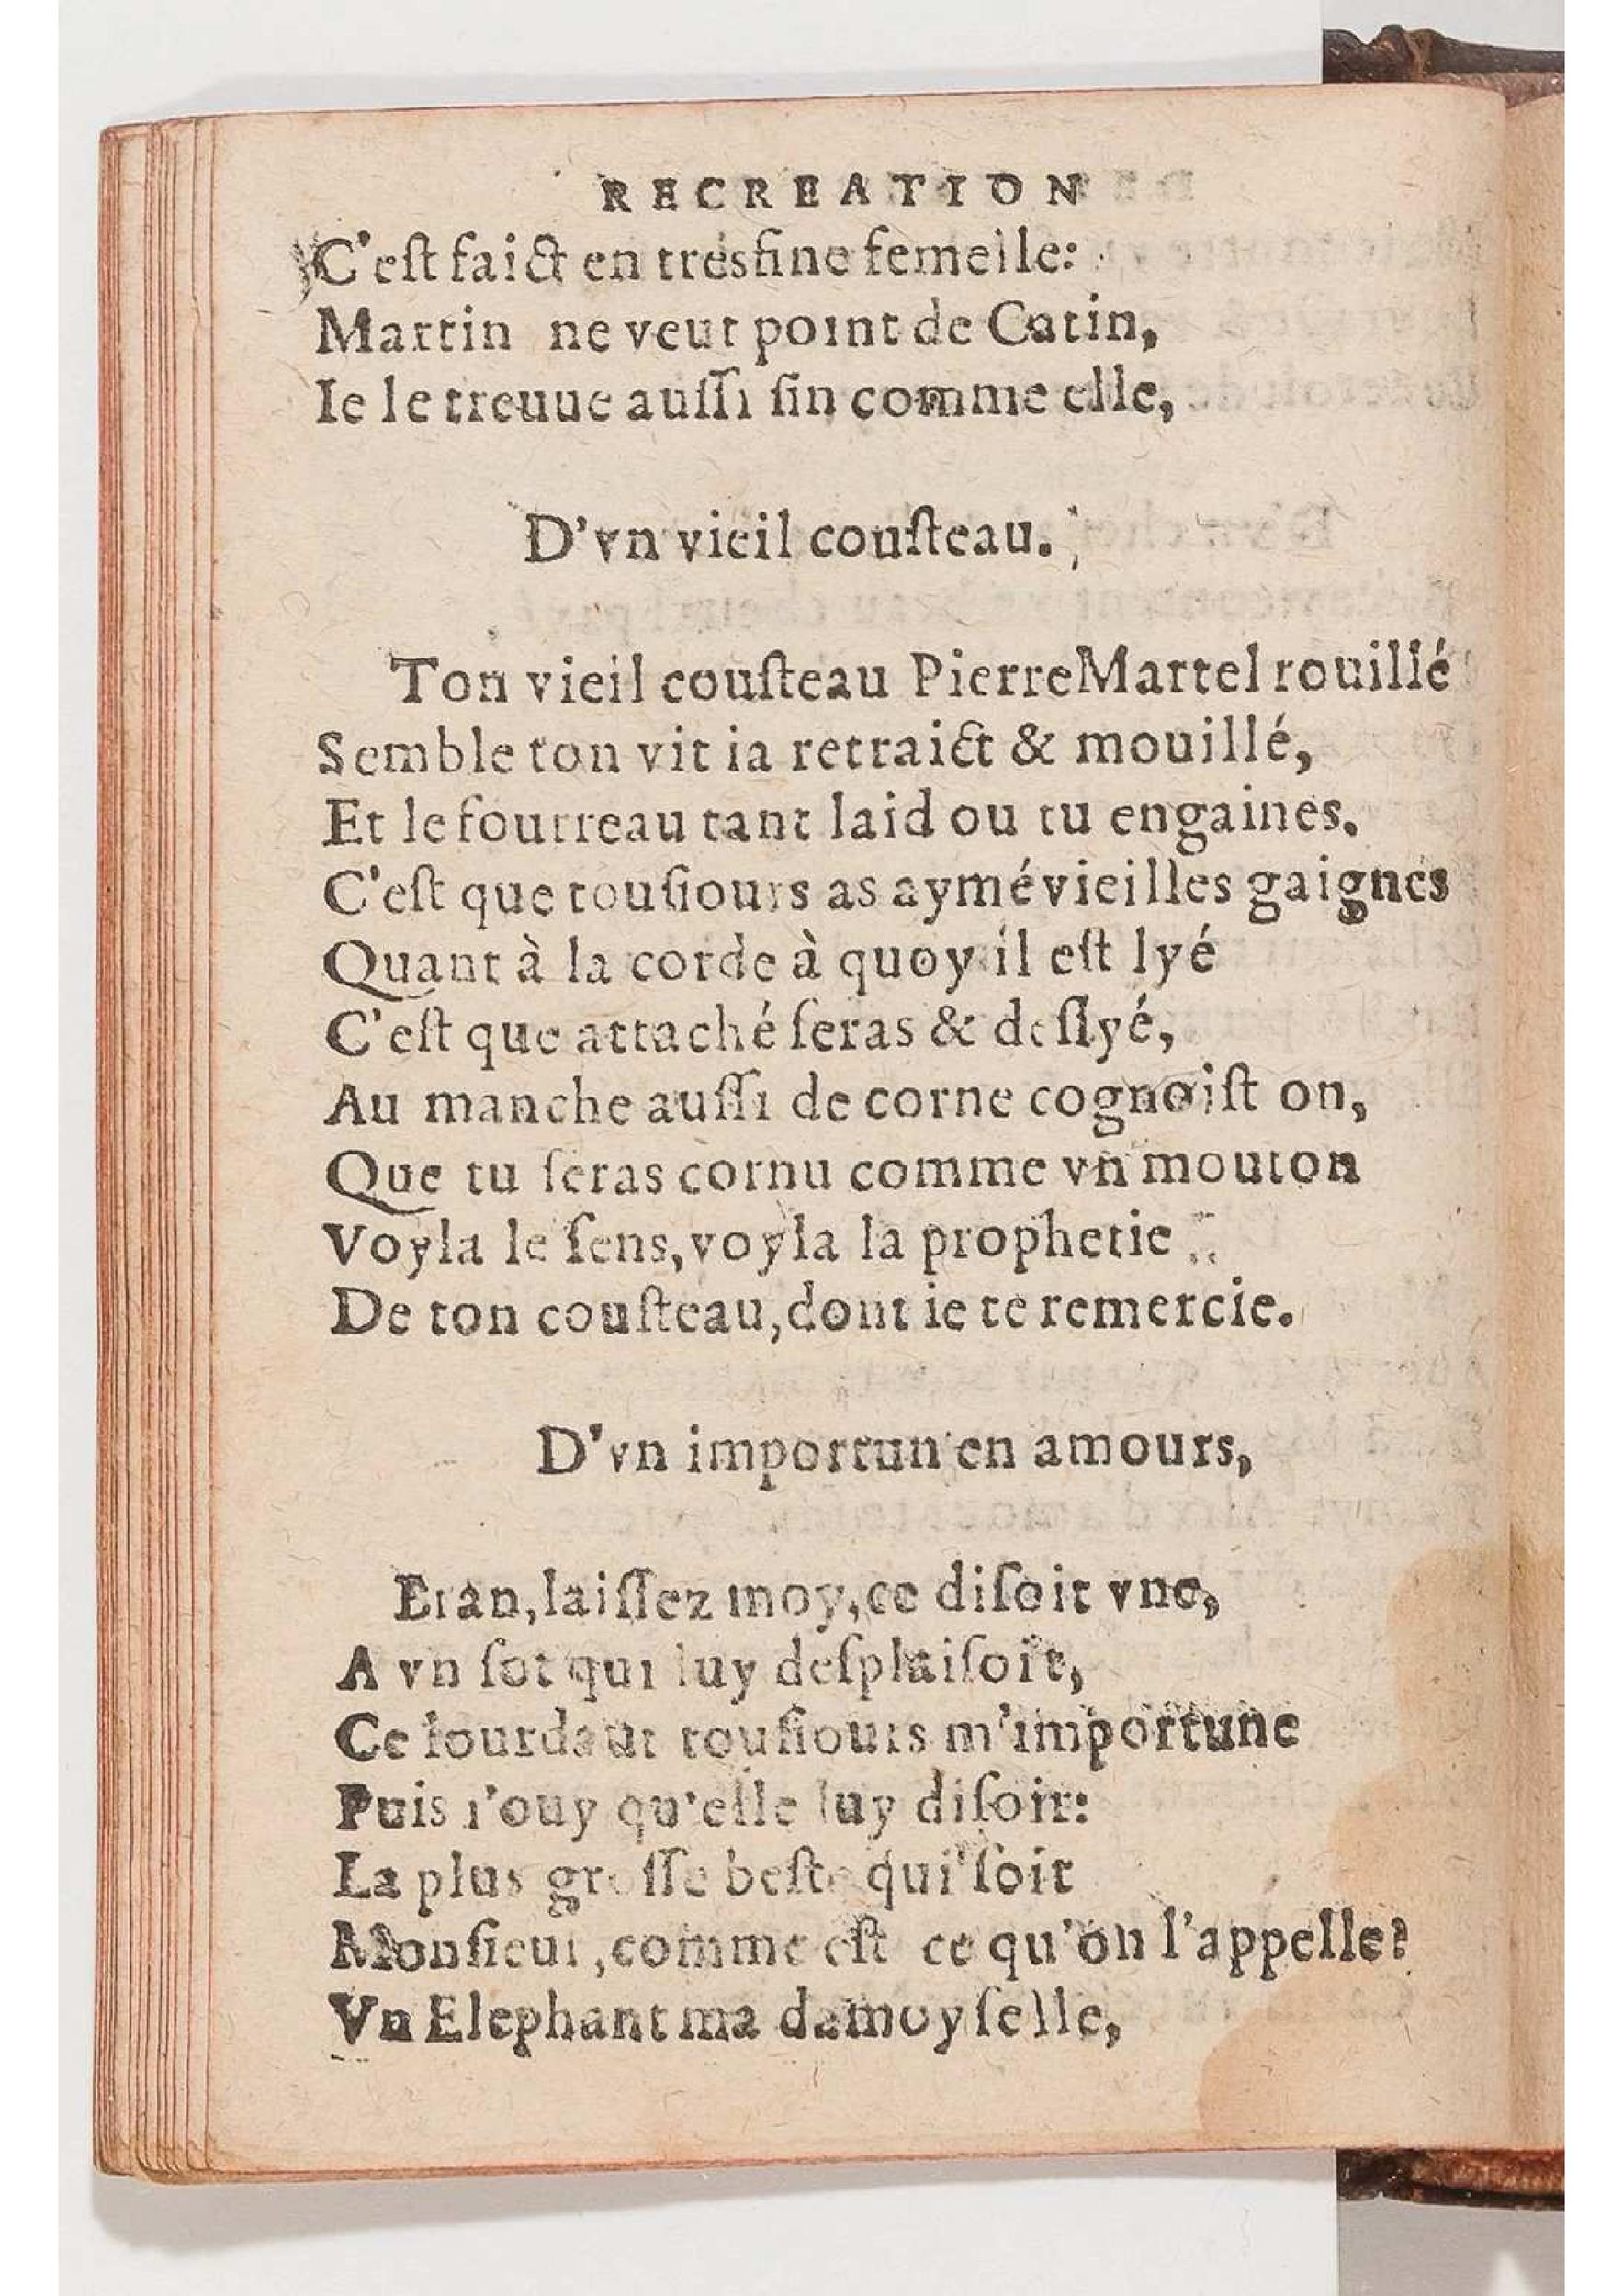 RECREATION
C'eſt faict en tresfine femelle:
Martin ne veut point de Catin,
Ie le treuue auſſi fin comme elle,
D'vn vieil couſteau.
Ton vieil couſteau Pierre Martel rouillé
Semble ton vit ia retraict & mouillé,
Et le fourreau tant laid ou tu engaines.
C'eſt que touſiours as aymé vieilles gaignes
Quant à la corde à quoy il eſt lyé
C'eſt que attaché ſeras & deſlyé,
Au manche auſſi de corne cognoiſt on,
Que tu ſeras cornu comme vn mouton
Voyla le ſens, voyla la prophetie
De ton couſteau, dont ie te remercie.
D'vn importun en amours,
Bran, laiſſez moy, ce diſoit vne,
A vn ſot qui luy deſplaiſoit,
Ce lourdaut touſiours m'importune
Puis i'ouy qu'elle luy diſoit:
La plus groſſe beſte qui ſoit
Monſieur, comme eſt ce qu'on l'appelle?
Vn Elephant ma damoyſelle,